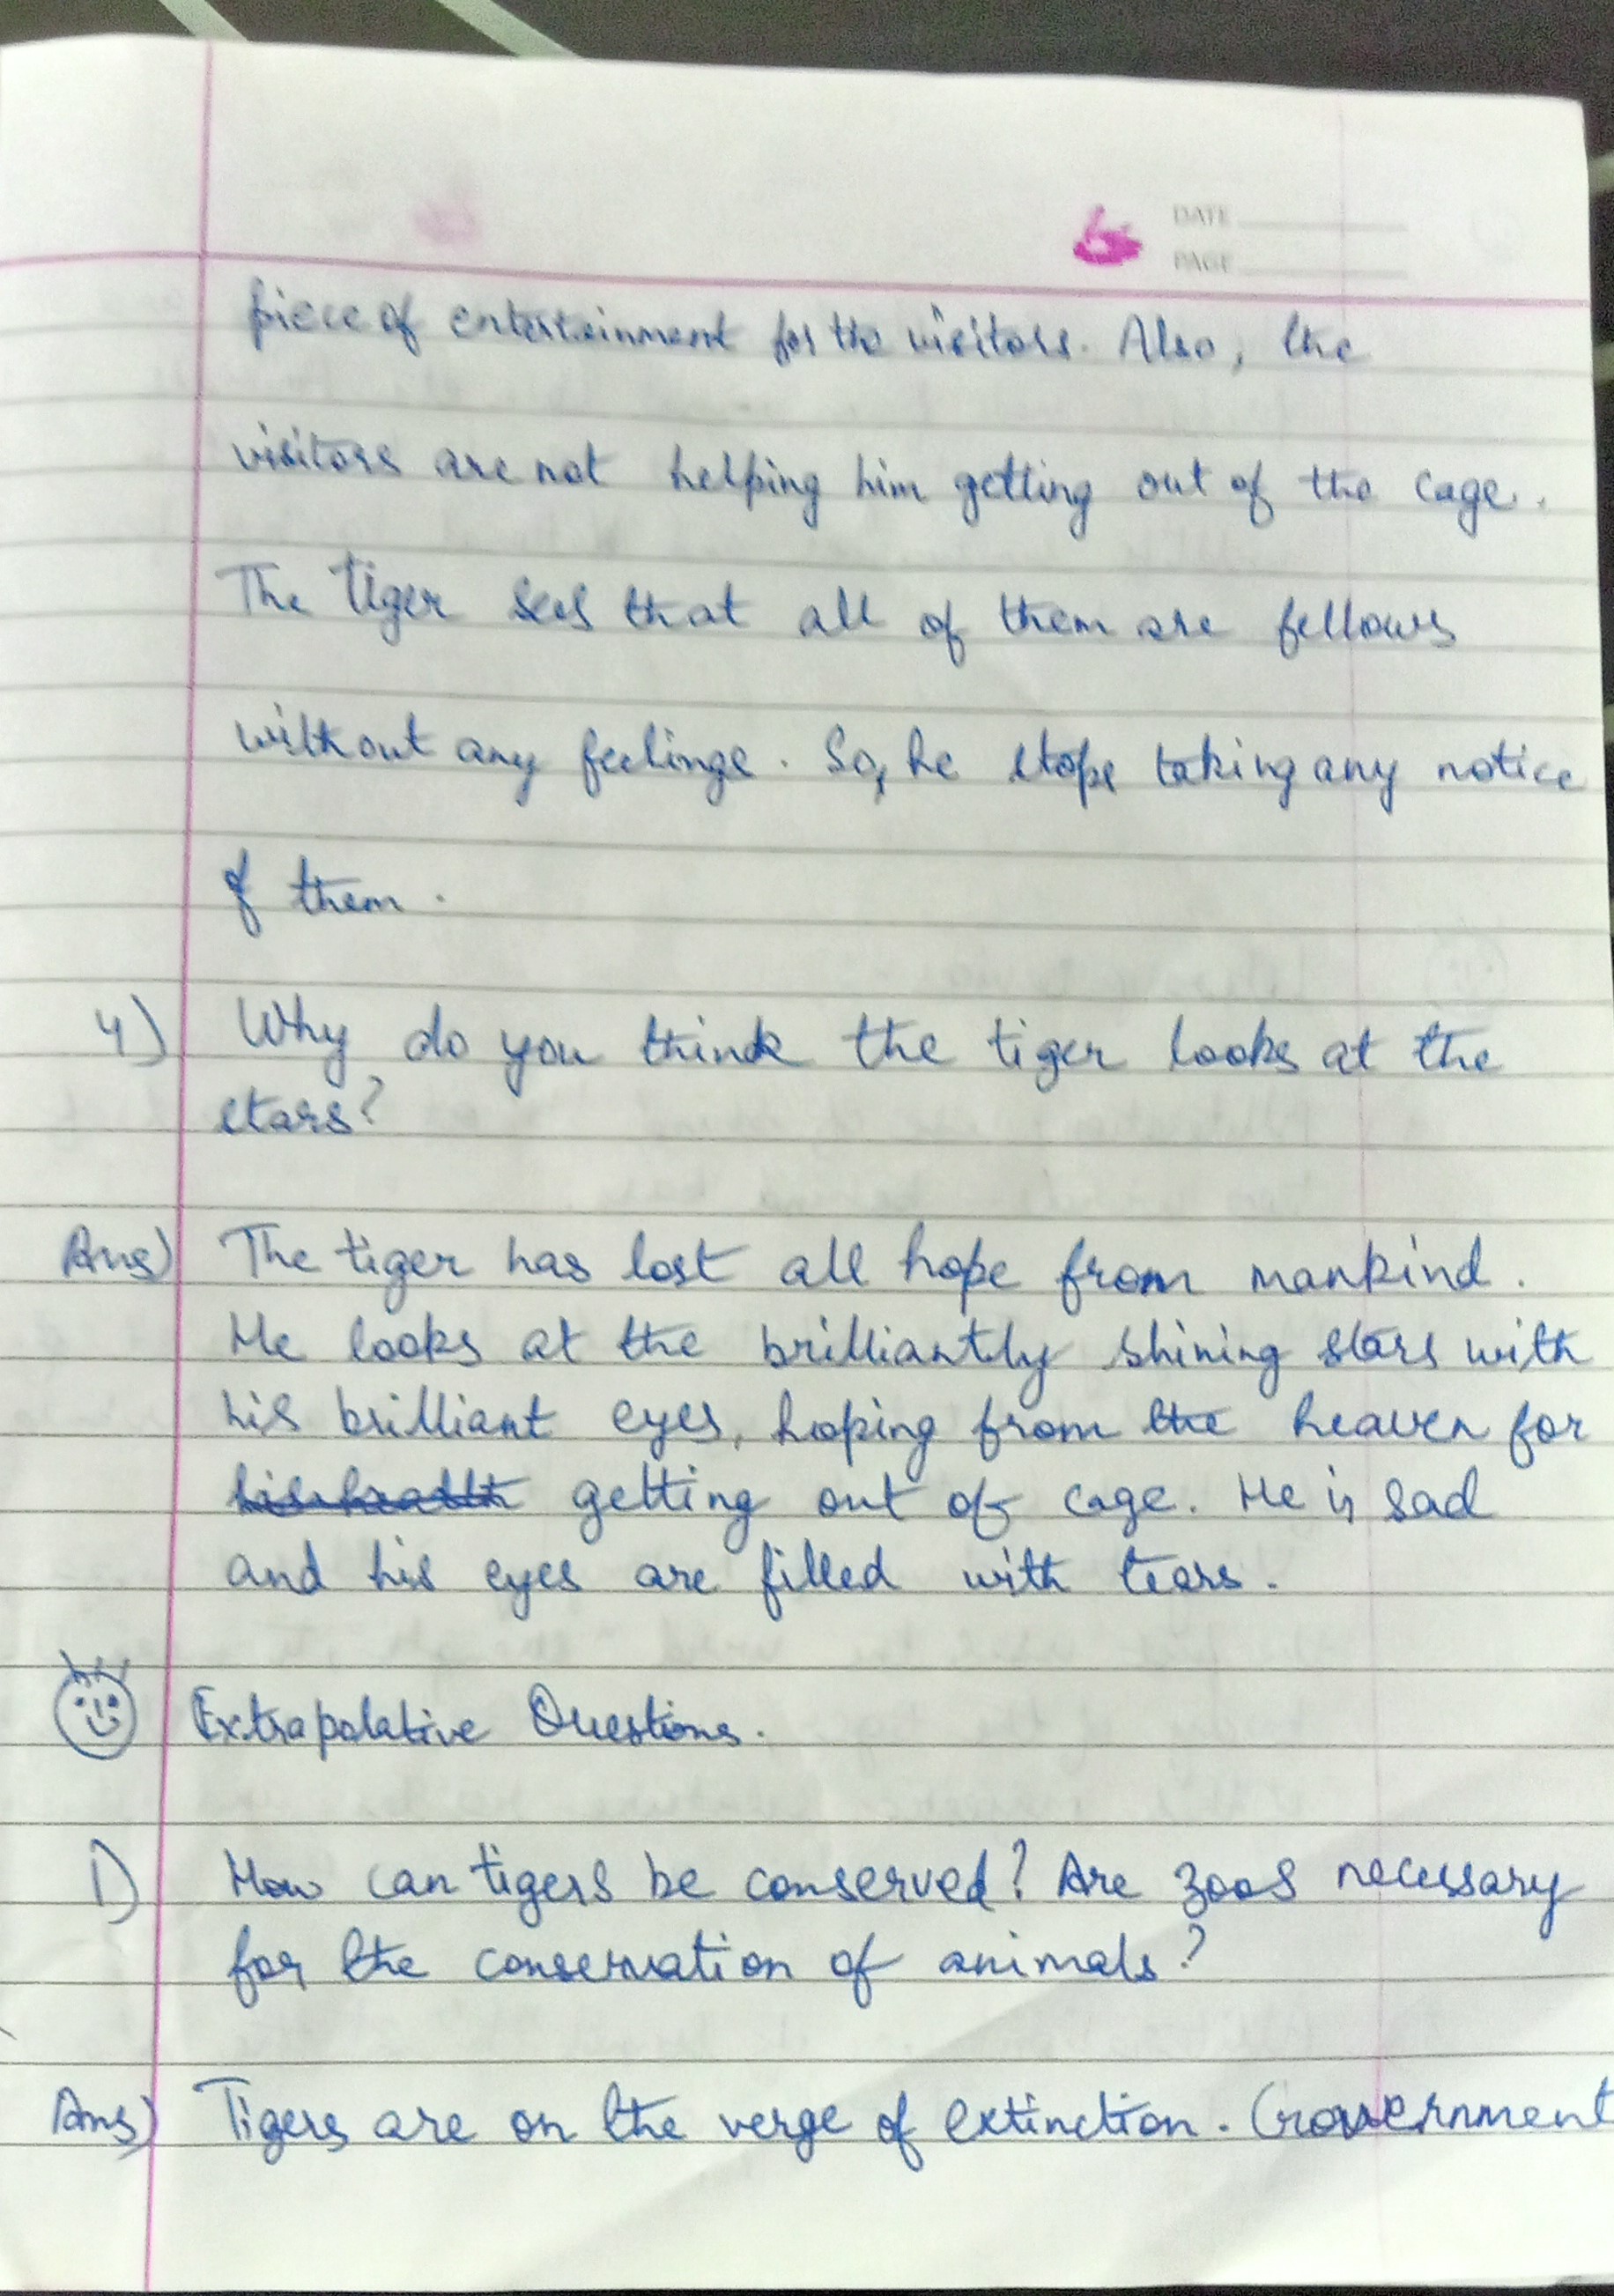 6
DATE
PAGE
piece of entertainment for the visitors. Also, the
visitors are not helping him getting out of the cage.
The tiger sees that all of them are fellows
without any feelings. So, he stops taking any notice
of them.
4) Why do you think the tiger looks at the
stars?
Ans) The tiger has lost all hope from mankind.
He looks at the brilliantly shining stars with
his brilliant eyes, hoping from the heaven for
getting out of cage. He is sad
and his eyes are filled with tears.
Extrapolative Questions.
1) How can tigers be conserved? Are zoos necessary
for the conservation of animals?
Ans) Tigers are on the verge of extinction. Government